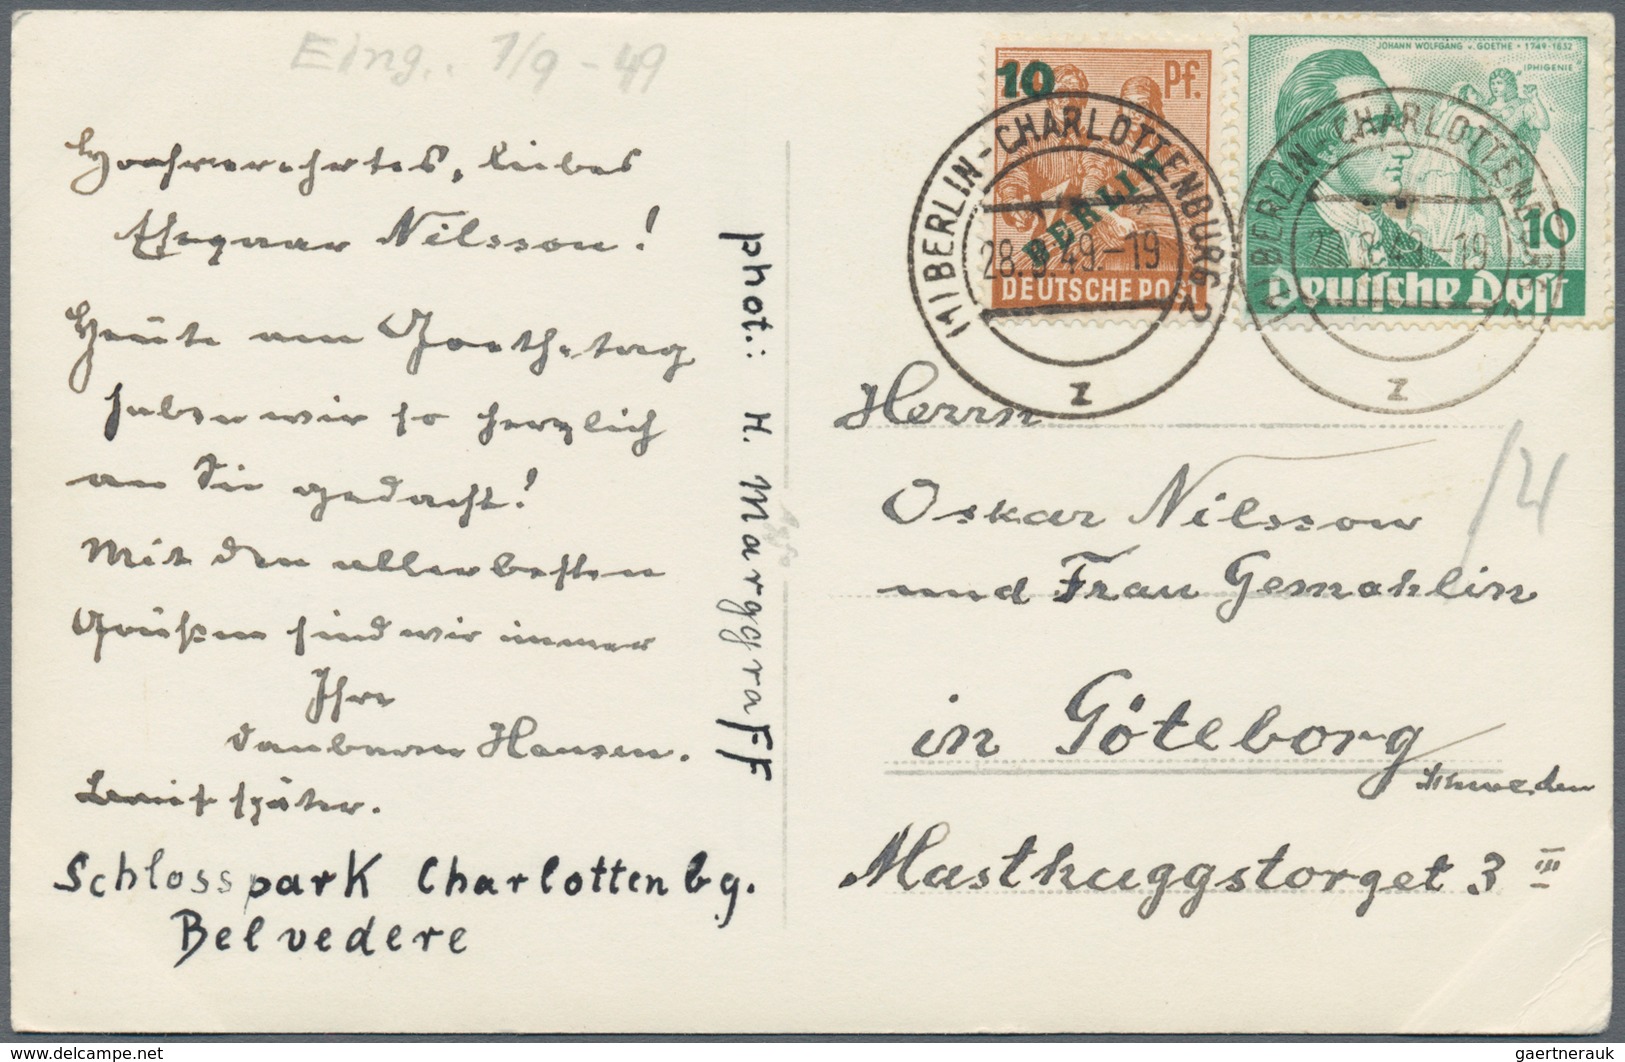 Eing.. 1/9 - 49
Hochverehrtes, liebes
Nilsson!
Heute am Goethetag
haben wir so herzlich
an Sie gedacht!
Mit den allerbesten
Grüßen sind wir immer
Ihre
dankbaren Hansen.
später.
Schlosspark Charlottenbg.
Belvedere
phot.: H. Marggraff
10 Pf.
BERLIN
DEUTSCHE POST
(1) BERLIN-CHARLOTTENBURG 2
28.8.49.-19
z
JOHANN WOLFGANG v. GOETHE · 1749-1832
IPHIGENIE
10
Deutsche Post
(1) BERLIN-CHARLOTTENBURG 2
8.49.-19
z
Herrn
Oskar Nilsson
und Frau Gemahlin
in Göteborg
Schweden
Masthuggstorget 3 III
gaertnerauk
www.delcampe.net